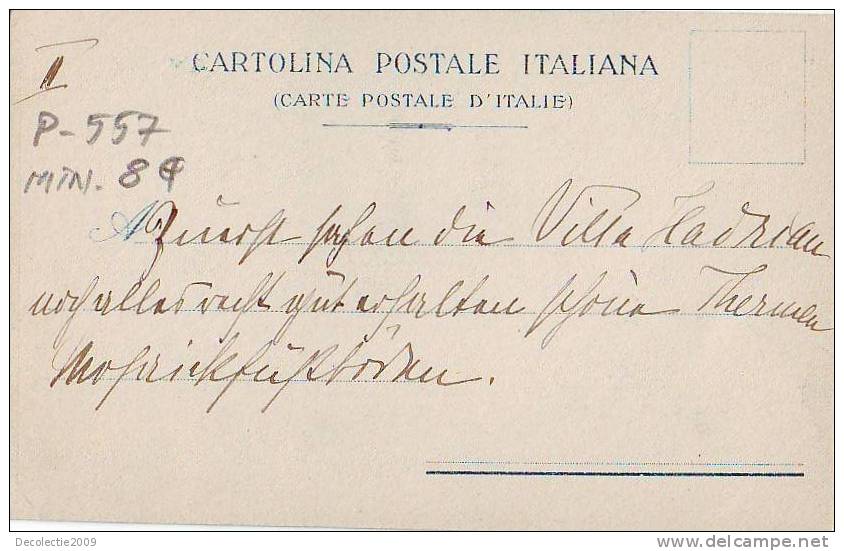 II
CARTOLINA POSTALE ITALIANA
(CARTE POSTALE D'ITALIE)
P-557
MIN. 8€
A Zuerst sahen die Villa Hadrian
noch alles recht gut erhalten schöne Thermen
Mosaickfußböden.
Decolectie2009
delcampe.net